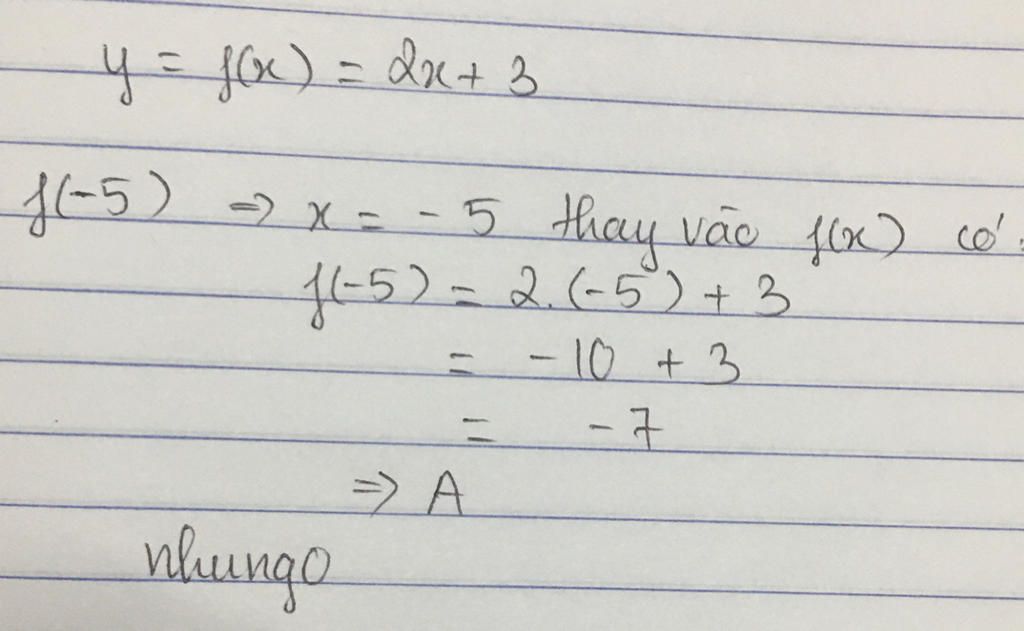 y = f(x) = 2x + 3
f(-5) => x = -5 thay vào f(x) có:
f(-5) = 2.(-5) + 3
= -10 + 3
= -7
=> A
nhungo